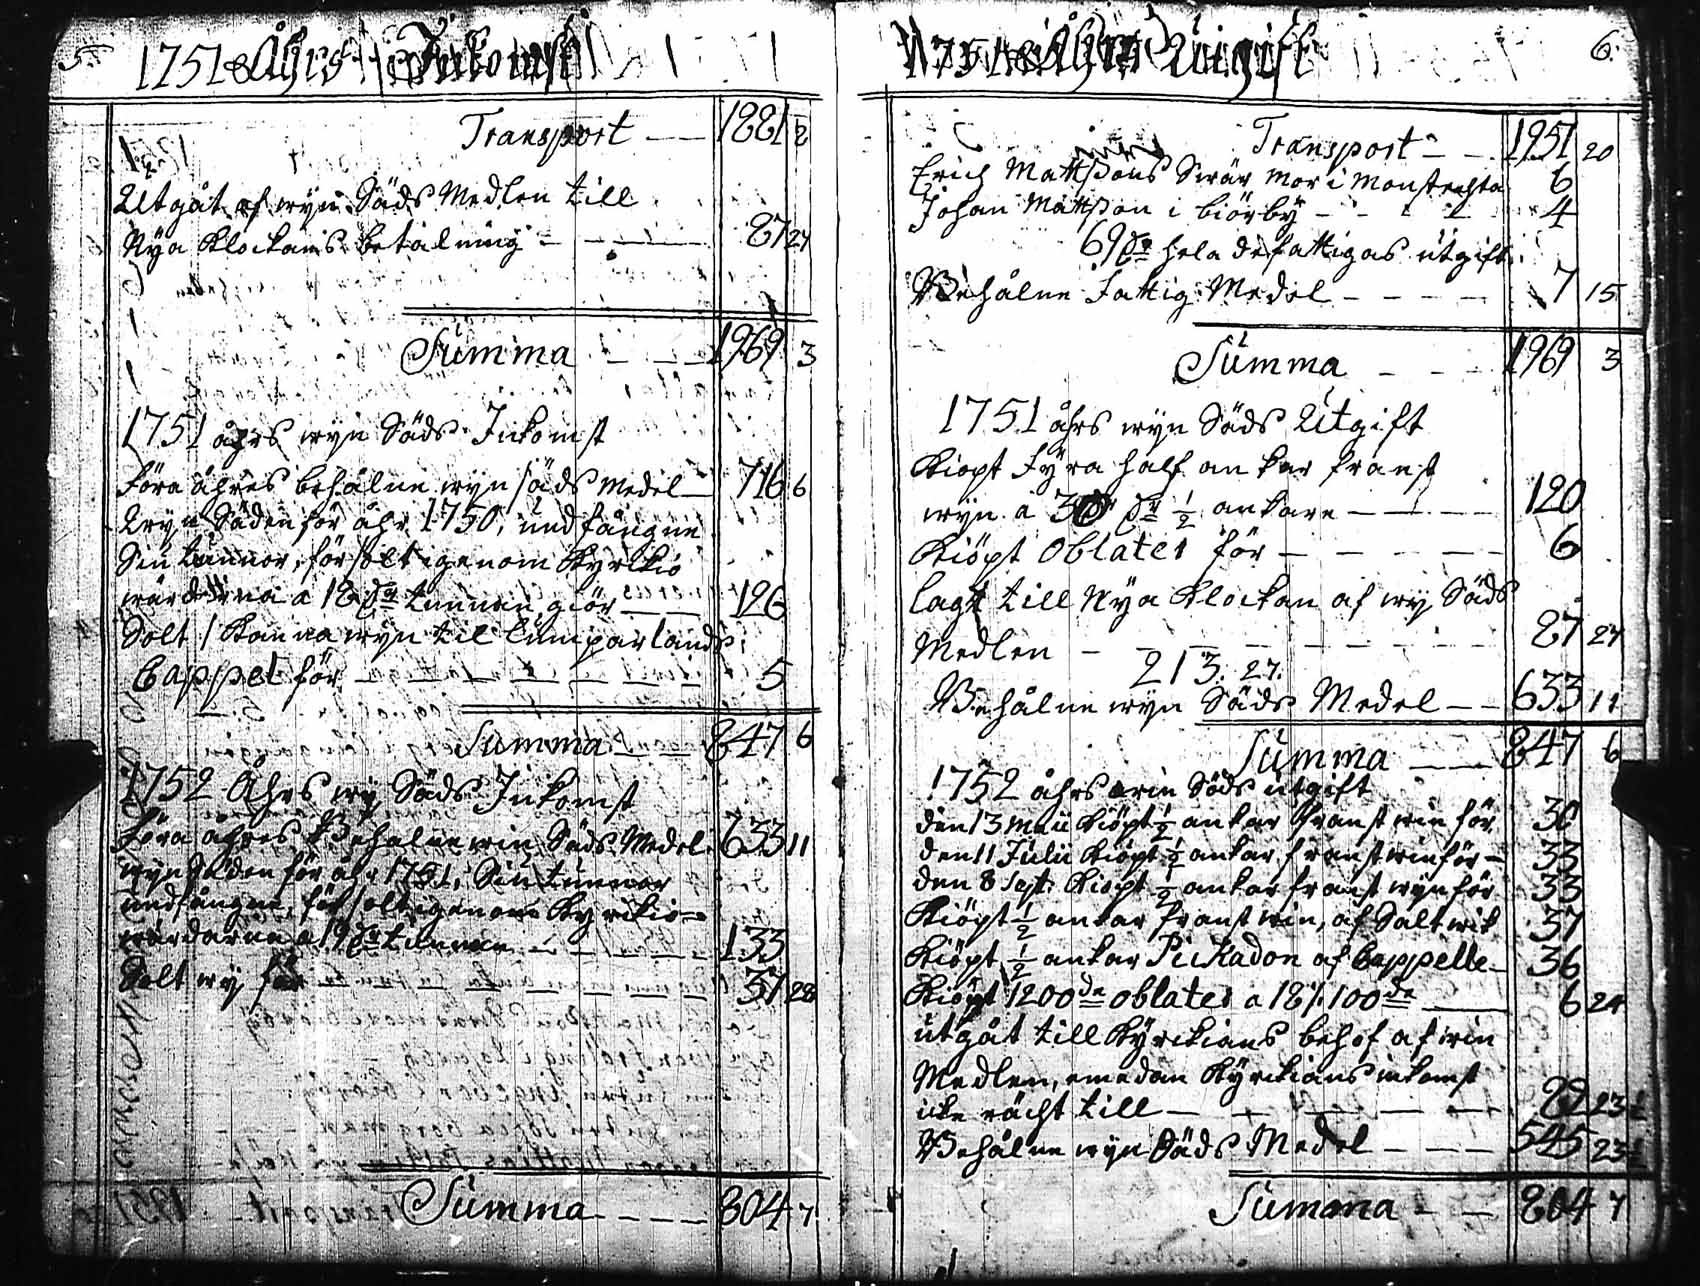 5
1751 Åhrs Inkomst
Transport — — 1881 8
Utgåt af wyn Säds Medlen till
Nya Klockans betalning — — — 87 27
Summa — — 1969 3
1751 åhrs wyn Säds Inkomst
Föra åhres behålne wyn säds medel — 716 6
Wyn Säden för åhr 1750, undfångne
Siu tunnor, försålt igenom Kyrkio
wärdarna a 18 dr tunnan giör — — 126
Sålt 1 Kanna wyn til Lumparlands
Cappel för — — — — 5
Summa — — 847 6
1752 Åhrs wy Säds Inkomst
Föra åhres Behålne win Säds Medel 633 11
wyn Säden för åhr 1751, Siu tunnor
undfångne, försålt igenom Kyrkio=
wärdarna a 19 dr tunnan — — — 133
Sålt wy för — — — — 37 28
Summa — — — 804 7
6.
1751 Åhrs Utgift
Transport — — 1951 20
Erich Mattssons Swär mor i Monstrehta 6
Johan Mattsson i biörby — — — 4
69 dr hela de fattigas utgift
Behålne Fattig Medel — — — — 7 15
Summa — — — 1969 3
1751 åhrs wyn Säds Utgift
Kiöpt Fyra half an kar franst
wyn a 30 dr ½ ankare — — — 120
Kiöpt Oblater för — — — — 6
lagt till Nya Klockan af wy Säds
Medlen — — — — — — 87 27
213. 27.
Behålne wyn Säds Medel — — 633 11
Summa — — 847 6
1752 åhrs win Säds utgift
den 13 Maii Kiöpt ½ ankar franst win för 30
den 11 Julii Kiöpt ½ ankar franst win för — 33
den 8 Sept: Kiöpt ½ ankar franst wyn för 33
Kiöpt ½ ankar franst win, af Saltwik 37
Kiöpt ½ ankar Pickadon af Cappelle — 36
Kiöpt 1200 de oblater a 18/ 100 de — 6 24
utgåt till Kyrkians behof af win
Medlen, emedan Kyrkians inkomst
icke räckt till — — — — — 82 23½
Behålne wyn Säds Medel — — — 545 23½
Summa — — 804 7